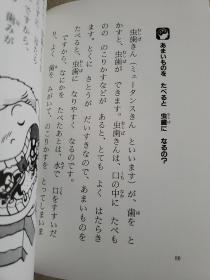 あまいものを たべると 虫歯に なるの?
虫歯きん(ミュータンスきん といいます)が、歯を と
かすと、虫歯が できます。虫歯きんは、口の中に たべも
の のこりかすなどが あると、とても よく はたらき
ます。とくに さとうが だいすきなので、あまいものを
たべると、虫歯に なりやすく なるのです。
ですから、なにかを たべたあとは、水で 口をすすいだ
り、よく 歯を みがいて、のこりかすを とってしまいま
88